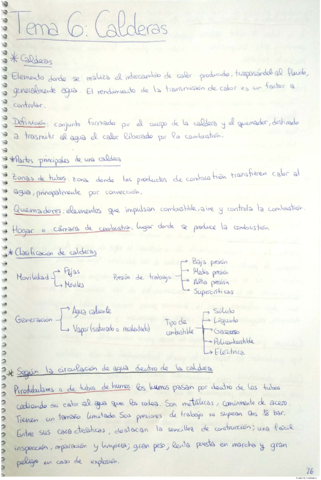 Tema 6: Calderas
* Calderas
Elemento donde se realiza el intercambio de calor producido, traspasándol al fluido,
generalmente agua. El rendimiento de la transmisión de calor es un factor a
controlar.
Definición: conjunto formado por el cuerpo de la caldera y el quemador, destinado
a trasmitir al agua el calor liberado por la combustión.
* Partes principales de una caldera
Zonas de tubos: zona donde los productos de combustión transfieren calor al
agua, principalmente por convección.
Quemadores: elementos que impulsan combustible, aire y controla la combustión.
Hogar o cámara de combustión: lugar donde se produce la combustión.
* Clasificación de calderas
Movilidad Fijas Móviles
Presión de trabajo Baja presión Media presión Alta presión Supercríticas
Generación Agua caliente Vapor (saturado o recalentado)
Tipo de combustible Sólido Líquido Gaseoso Policombustible Eléctrica
* Según la circulación de agua dentro de la caldera
Pirotubulares o de tubos de humos: los humos pasan por dentro de los tubos
cediendo su calor al agua que los rodea. Son metálicas, comúnmente de acero.
Tienen un tamaño limitado. Son presiones de trabajo no superan los bar.
Entre sus características, destacan la sencillez de construcción, una fácil
inspección, reparación y limpieza, gran peso, lenta puesta en marcha y gran
peligro en caso de explosión.
26